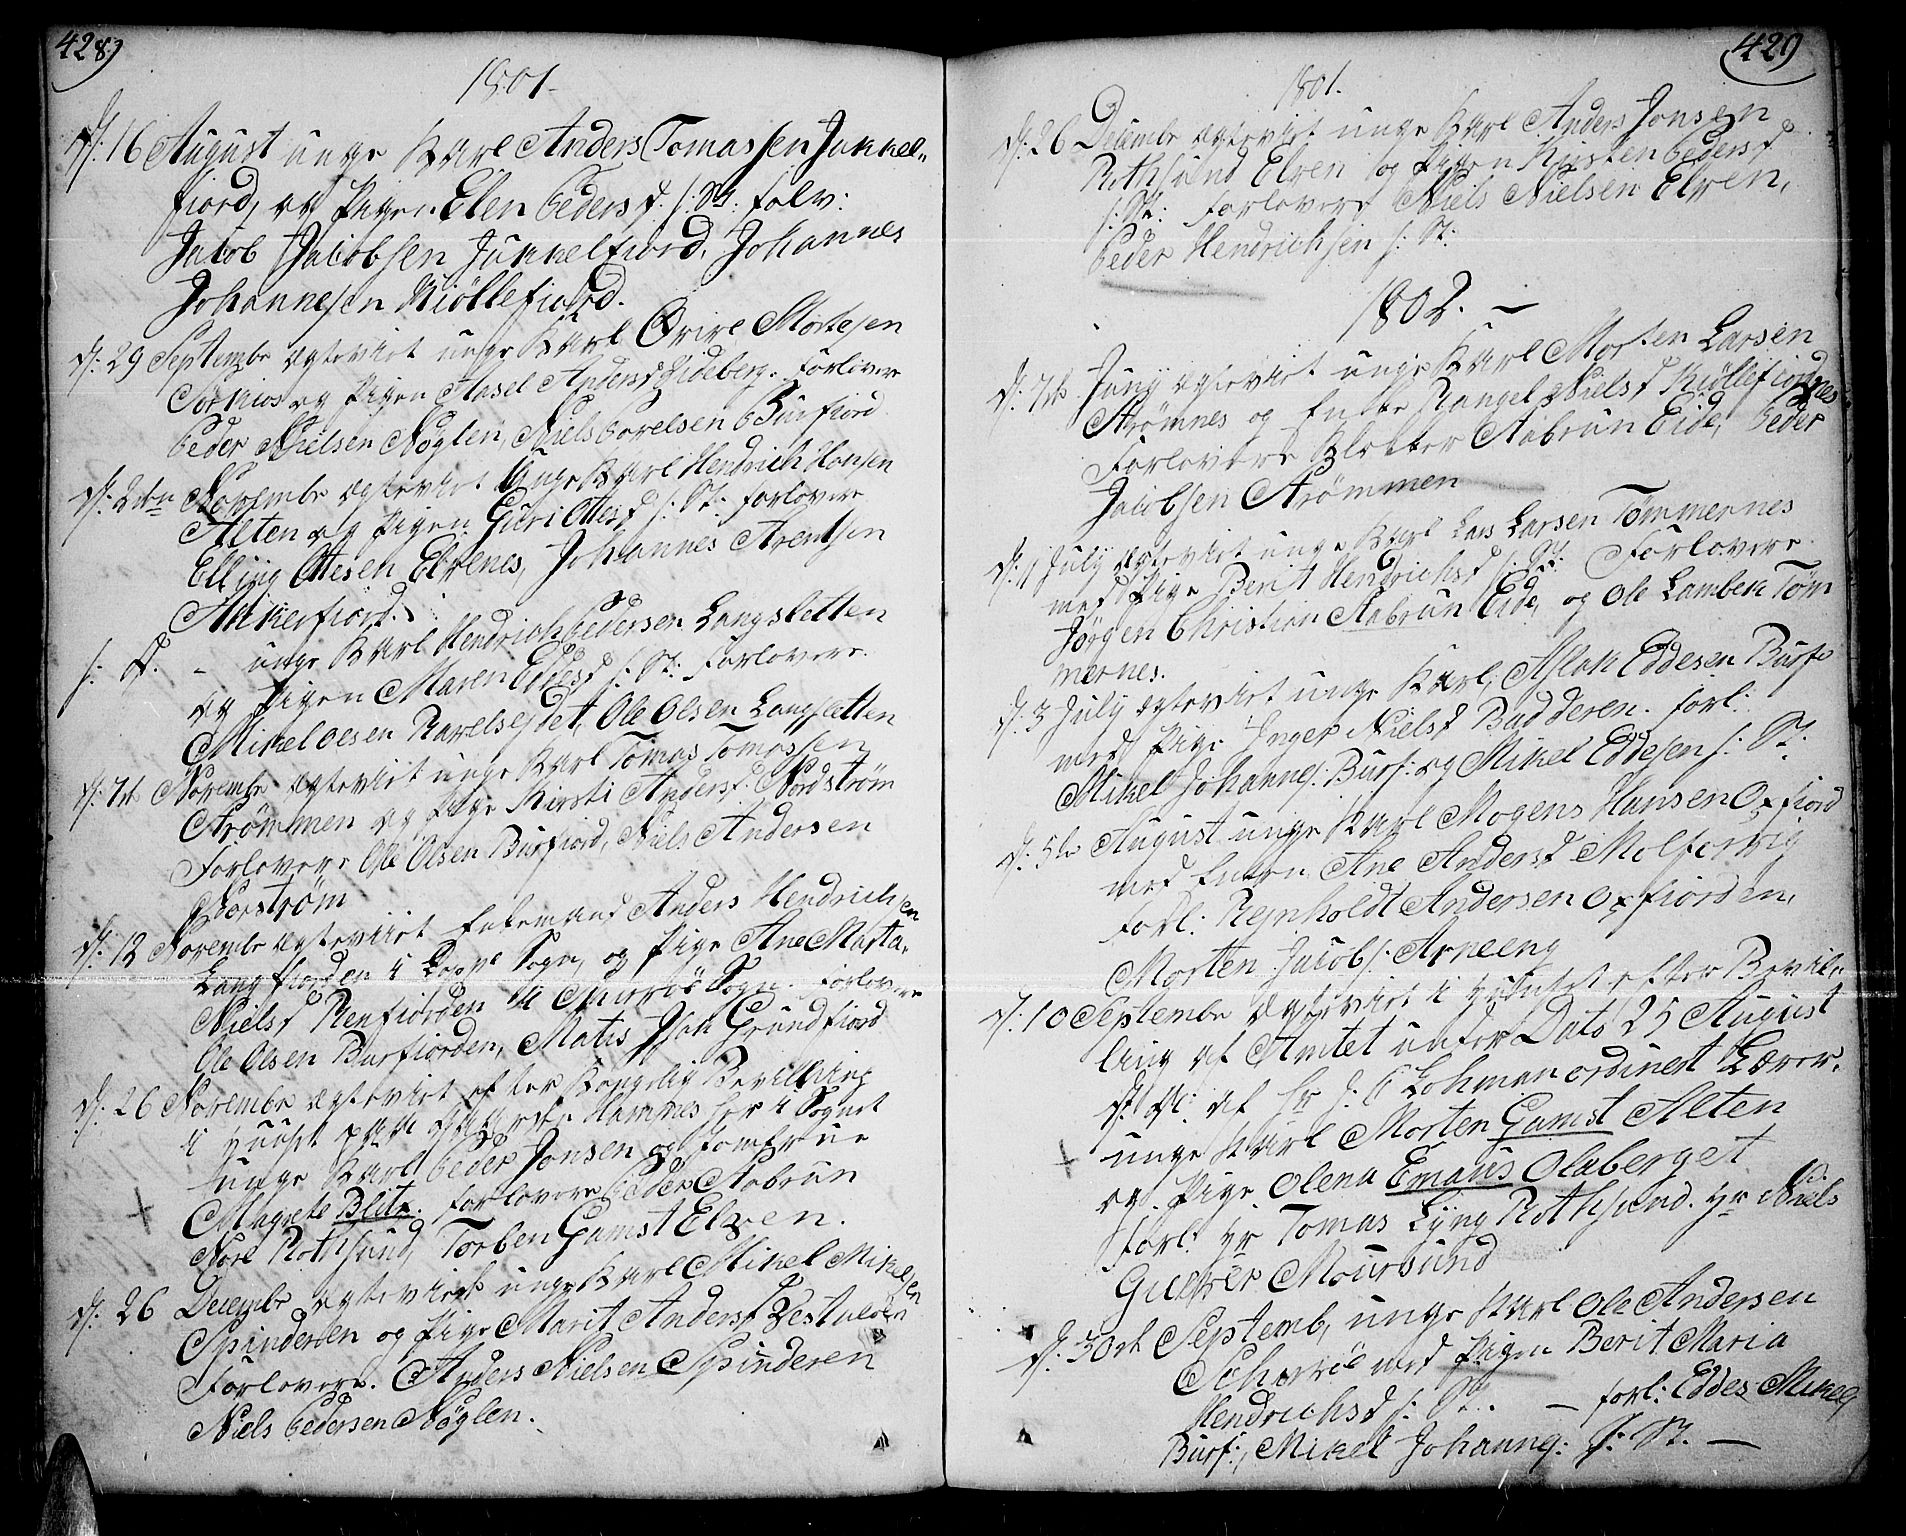 428)
1801.
d: 16 August unge Karl Anders Tomassen Jøkkel„
fiord, og Pigen Elen Pedersd. s: St: forlv:
Jacob Jacobsen Jøkkelfiord, Johannes
Johannesen Kiöllefiord.
d: 29 Septembr Ægteviet unge Karl Qvive Mortesen
og Pigen Aasel Andersd Hideberg. Forlovere
Peder Nielsen Nöglen, Niels Povelsen Burfiord
d: 2den Novembr Ægteviet Unge Karl Hendrich Hansen
Alten og Pigen Guri Ottesd s: St. forlovere
Elling Ottesen Elvenes, Johannes Arentsen
Alikerfiord.
s: D. - unge Karl Hendrich Pedersen Langsletten
og Pigen Maren Eddesd s: St: Forlovere.
Mikel Olesen Ravelseydet, Ole Olsen Langsletten
d: 7d Novembr Ægteviet unge Karl Tomas Tomassen
Strömmen og Pige Kirsti Andersd: Nordström
Forlovere Ole Olsen Burfiord, Niels Andersen
Norström
d: 12 Novembr Ægteviet Enkemand Anders Hendrichsen
Langfiorden i Loppe Sogn, og Pige Ane Marta
Nielsd Reinfiorden i Skiervöe Sogn. Forlovere
Ole Olsen Burfiorden, Matis Isak Grundfiord
d: 26 Novembr Ægteviet efter Kongelig Bevilling
i Huuset paa Hamnes her i Sognet
unge Karl Peder Jonsen og Jomfrue
+ Magrete Blix. forlovere Peder Aabrun
Nore Rothsund, Torben Gamst Elven.
d: 26 Decembr Ægteviet unge Karl Mikel Mikelsen
Spinderen og Pige Marit Andersd
Forlovere. Anders Nielsen Spinderen
Niels Pedersen Nöglen.
429
1801.
d: 26 Decembr Ægteviet unge Karl Anders Jonsen
Rothsund Elven og Pigen Kirsten Pedersd
s: St: Forlovere Niels Nielsen Elven,
Peder Hendrichsen s: St:
1802. —
d: 7de Juny Ægteviet unge Karl Morten Larsen
Strömnes og Enke Rangel Nielsd Kiöllefiordnes
Forlovere Klokker Aabrun Eide, Peder
Jacobsen Strömmen
d: 1 July Ægteviet unge Karl Lars Larsen Tömmernes
med Pige Berit Hendrichsd s: St: Forlovere
Jörgen Christian Aabrun Eide, og Ole Lambek Töm
mernes.
d: 3 July Ægteviet unge Karl, Aslak Eddesen Burf:
med Pige Inger Nielsd Badderen. forl:
Mikel Johannes: Burf: og Mikel Eddesen s: St:
d: 5te August unge Karl Mogens Hansen Oxfiord
med Enken Ane Andersd Molforvig
forl: Reinholdt Andersen Oxfiorden,
Morten Jacobs: Arneeng
d: 10 Septembr Ægteviet i Huuset efter Bevil„
ling af Amtet under Dato 25 August
d: A: af Hr J: C Lohman ordinert Lærer.
+ unge Karl Morten Gamst Alten
og Pige Olena Emaus Olaberget
forl: Hr Tomas Lyng Rothsund. Hr Niels
Gulver Moursund
d: 30d Septemb, unge Karl Ole Andersen
med Pigen Berit Maria
Hendrichsd s: St. — forl: Eddes Mikels
Burf:, Mikel Johannes: s: St. —